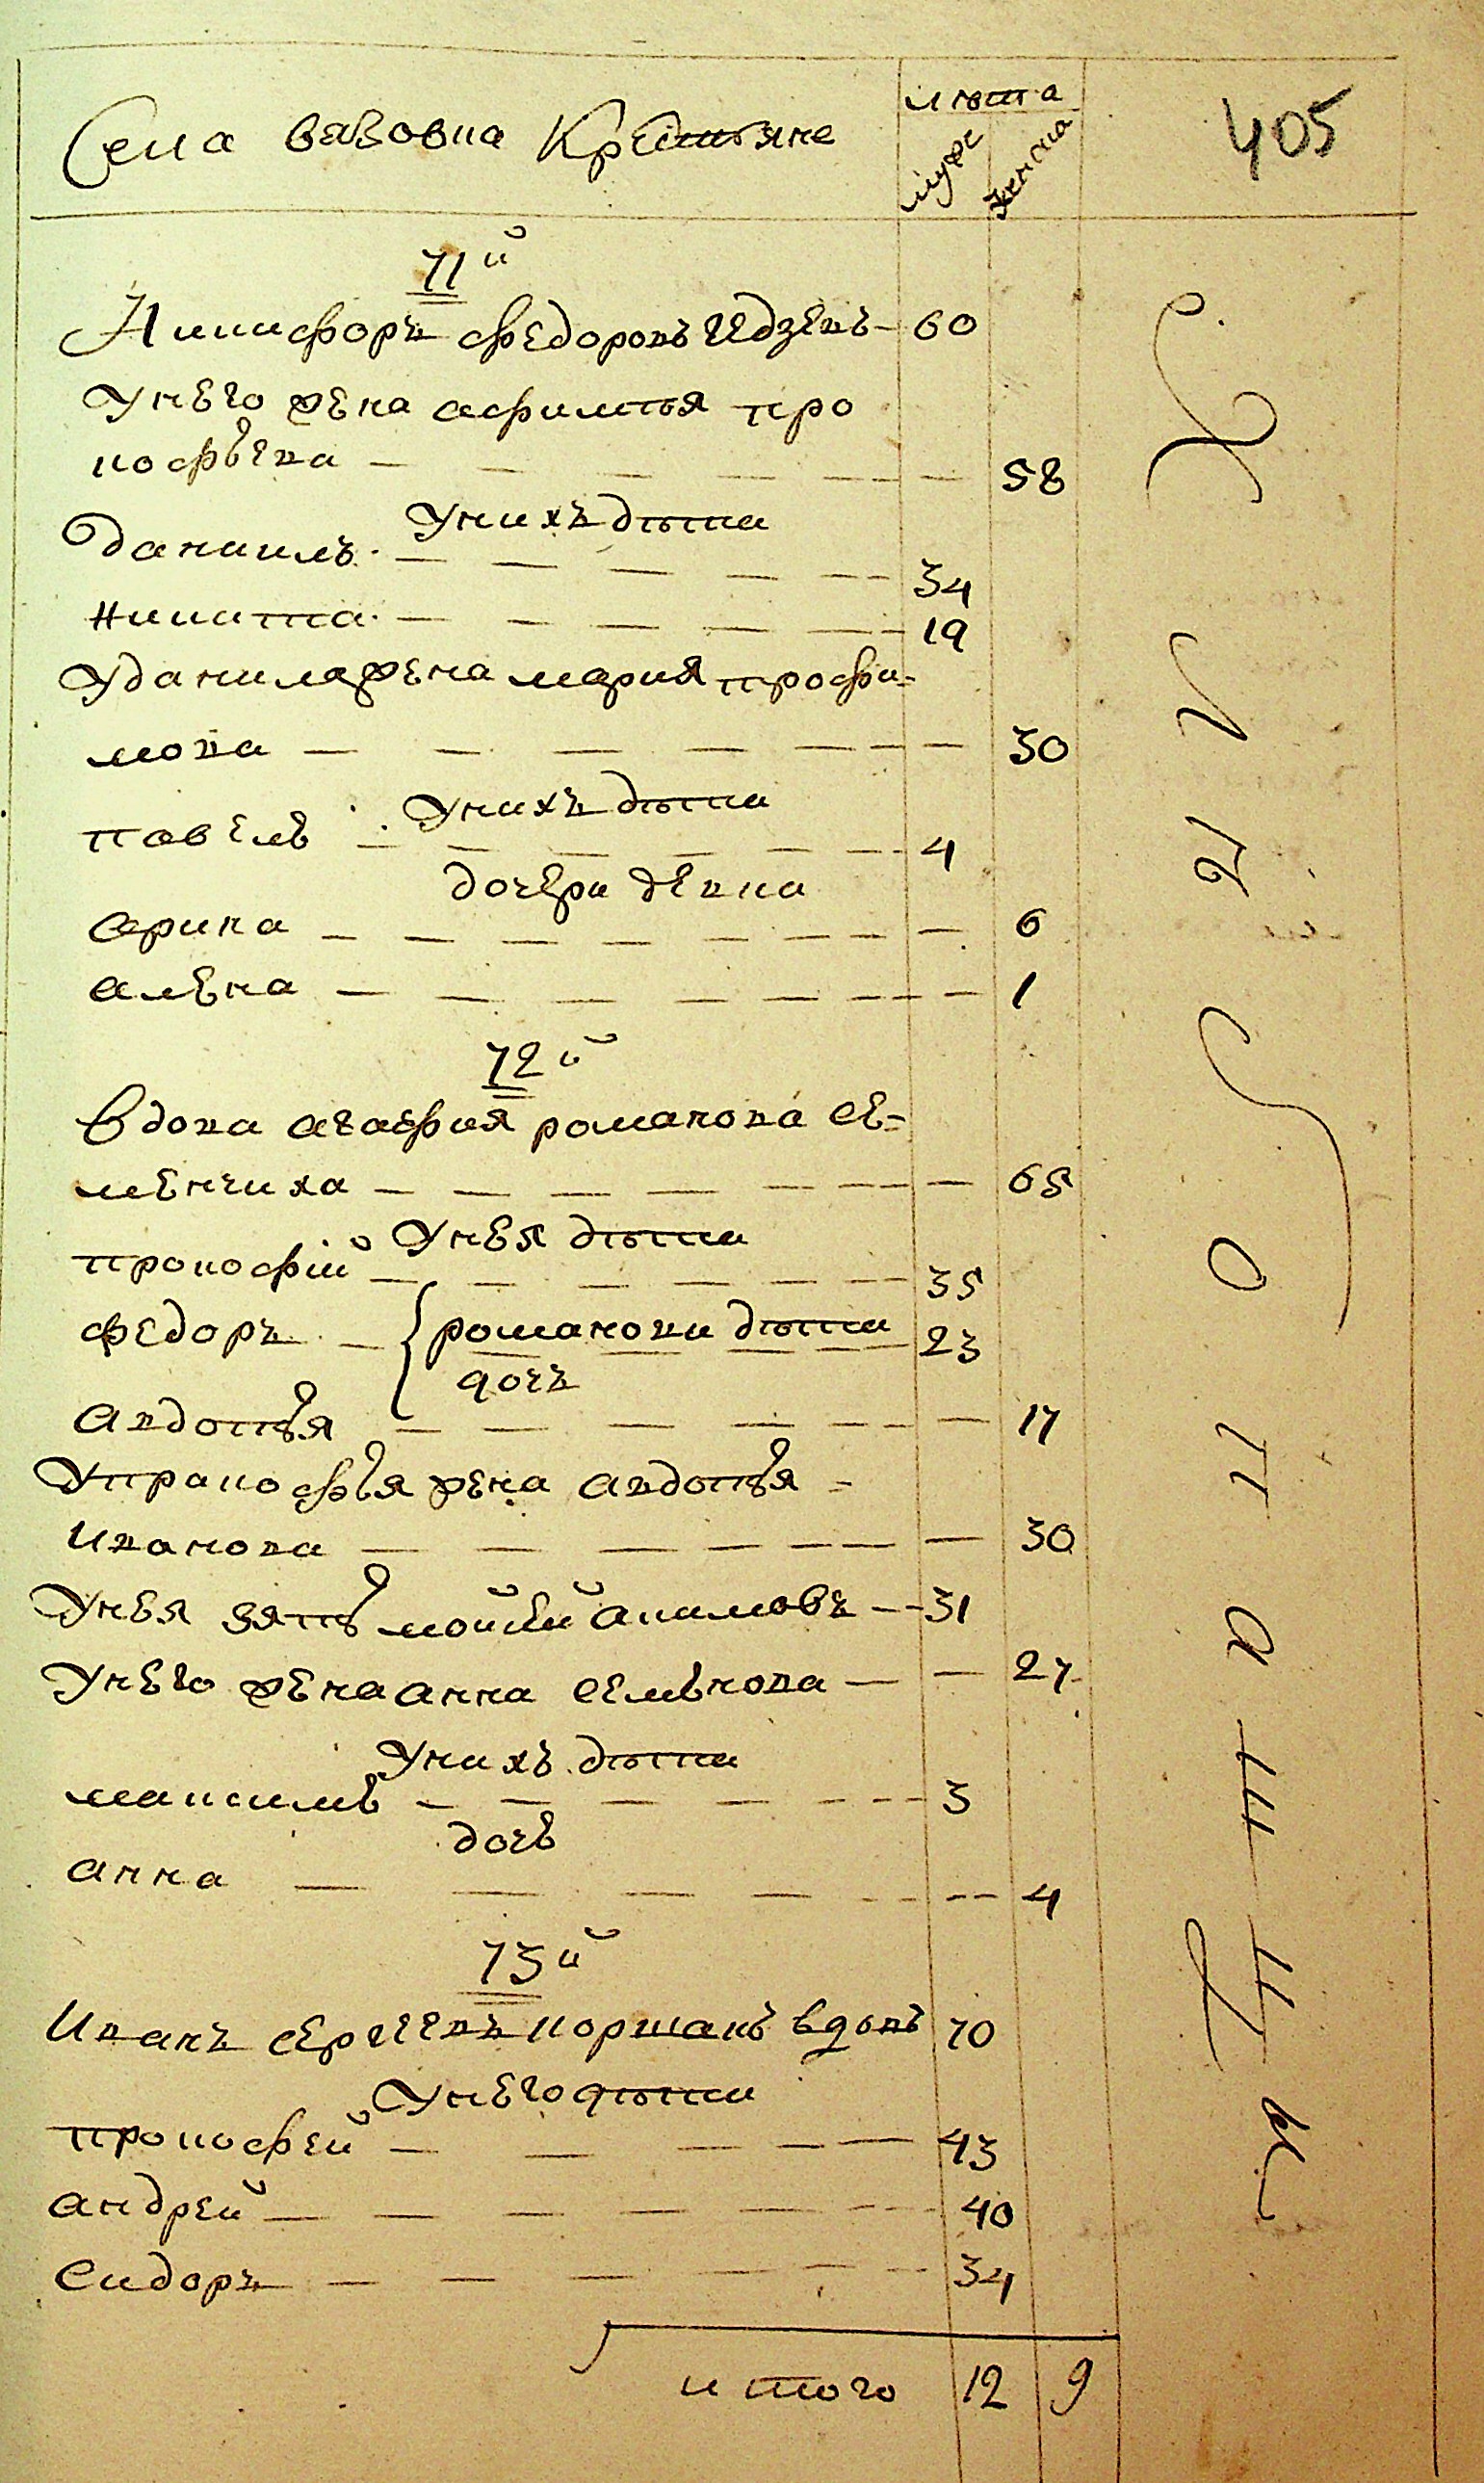 Села вязовка Крестьяне
лѣта
муже
женска
405
71й
Никифоръ федоровъ
60
Унего жена афимья про
кофьева
58
Унихъ дѣти
данилъ
34
никита
19
Уданила жена мария трофи-
мова
30
Унихъ дѣти
павелъ
4
дочери девки
арина
6
алена
1
72й
вдова агафия романова се-
менчиха
65
Унея дѣти
прокофий
35
федоръ
романови дѣти
23
дочъ
авдотья
17
Упрокофья жена авдотья
иванова
30
Унея зять мойсей акимовъ
31
Унего жена анна семьнова
27
Унихъ дѣти
максимъ
3
дочь
анна
4
73й
иванъ сергеевъ коршакъ вдовъ
70
Унего дѣти
прокофей
43
андрей
40
сидоръ
34
итого
12
9